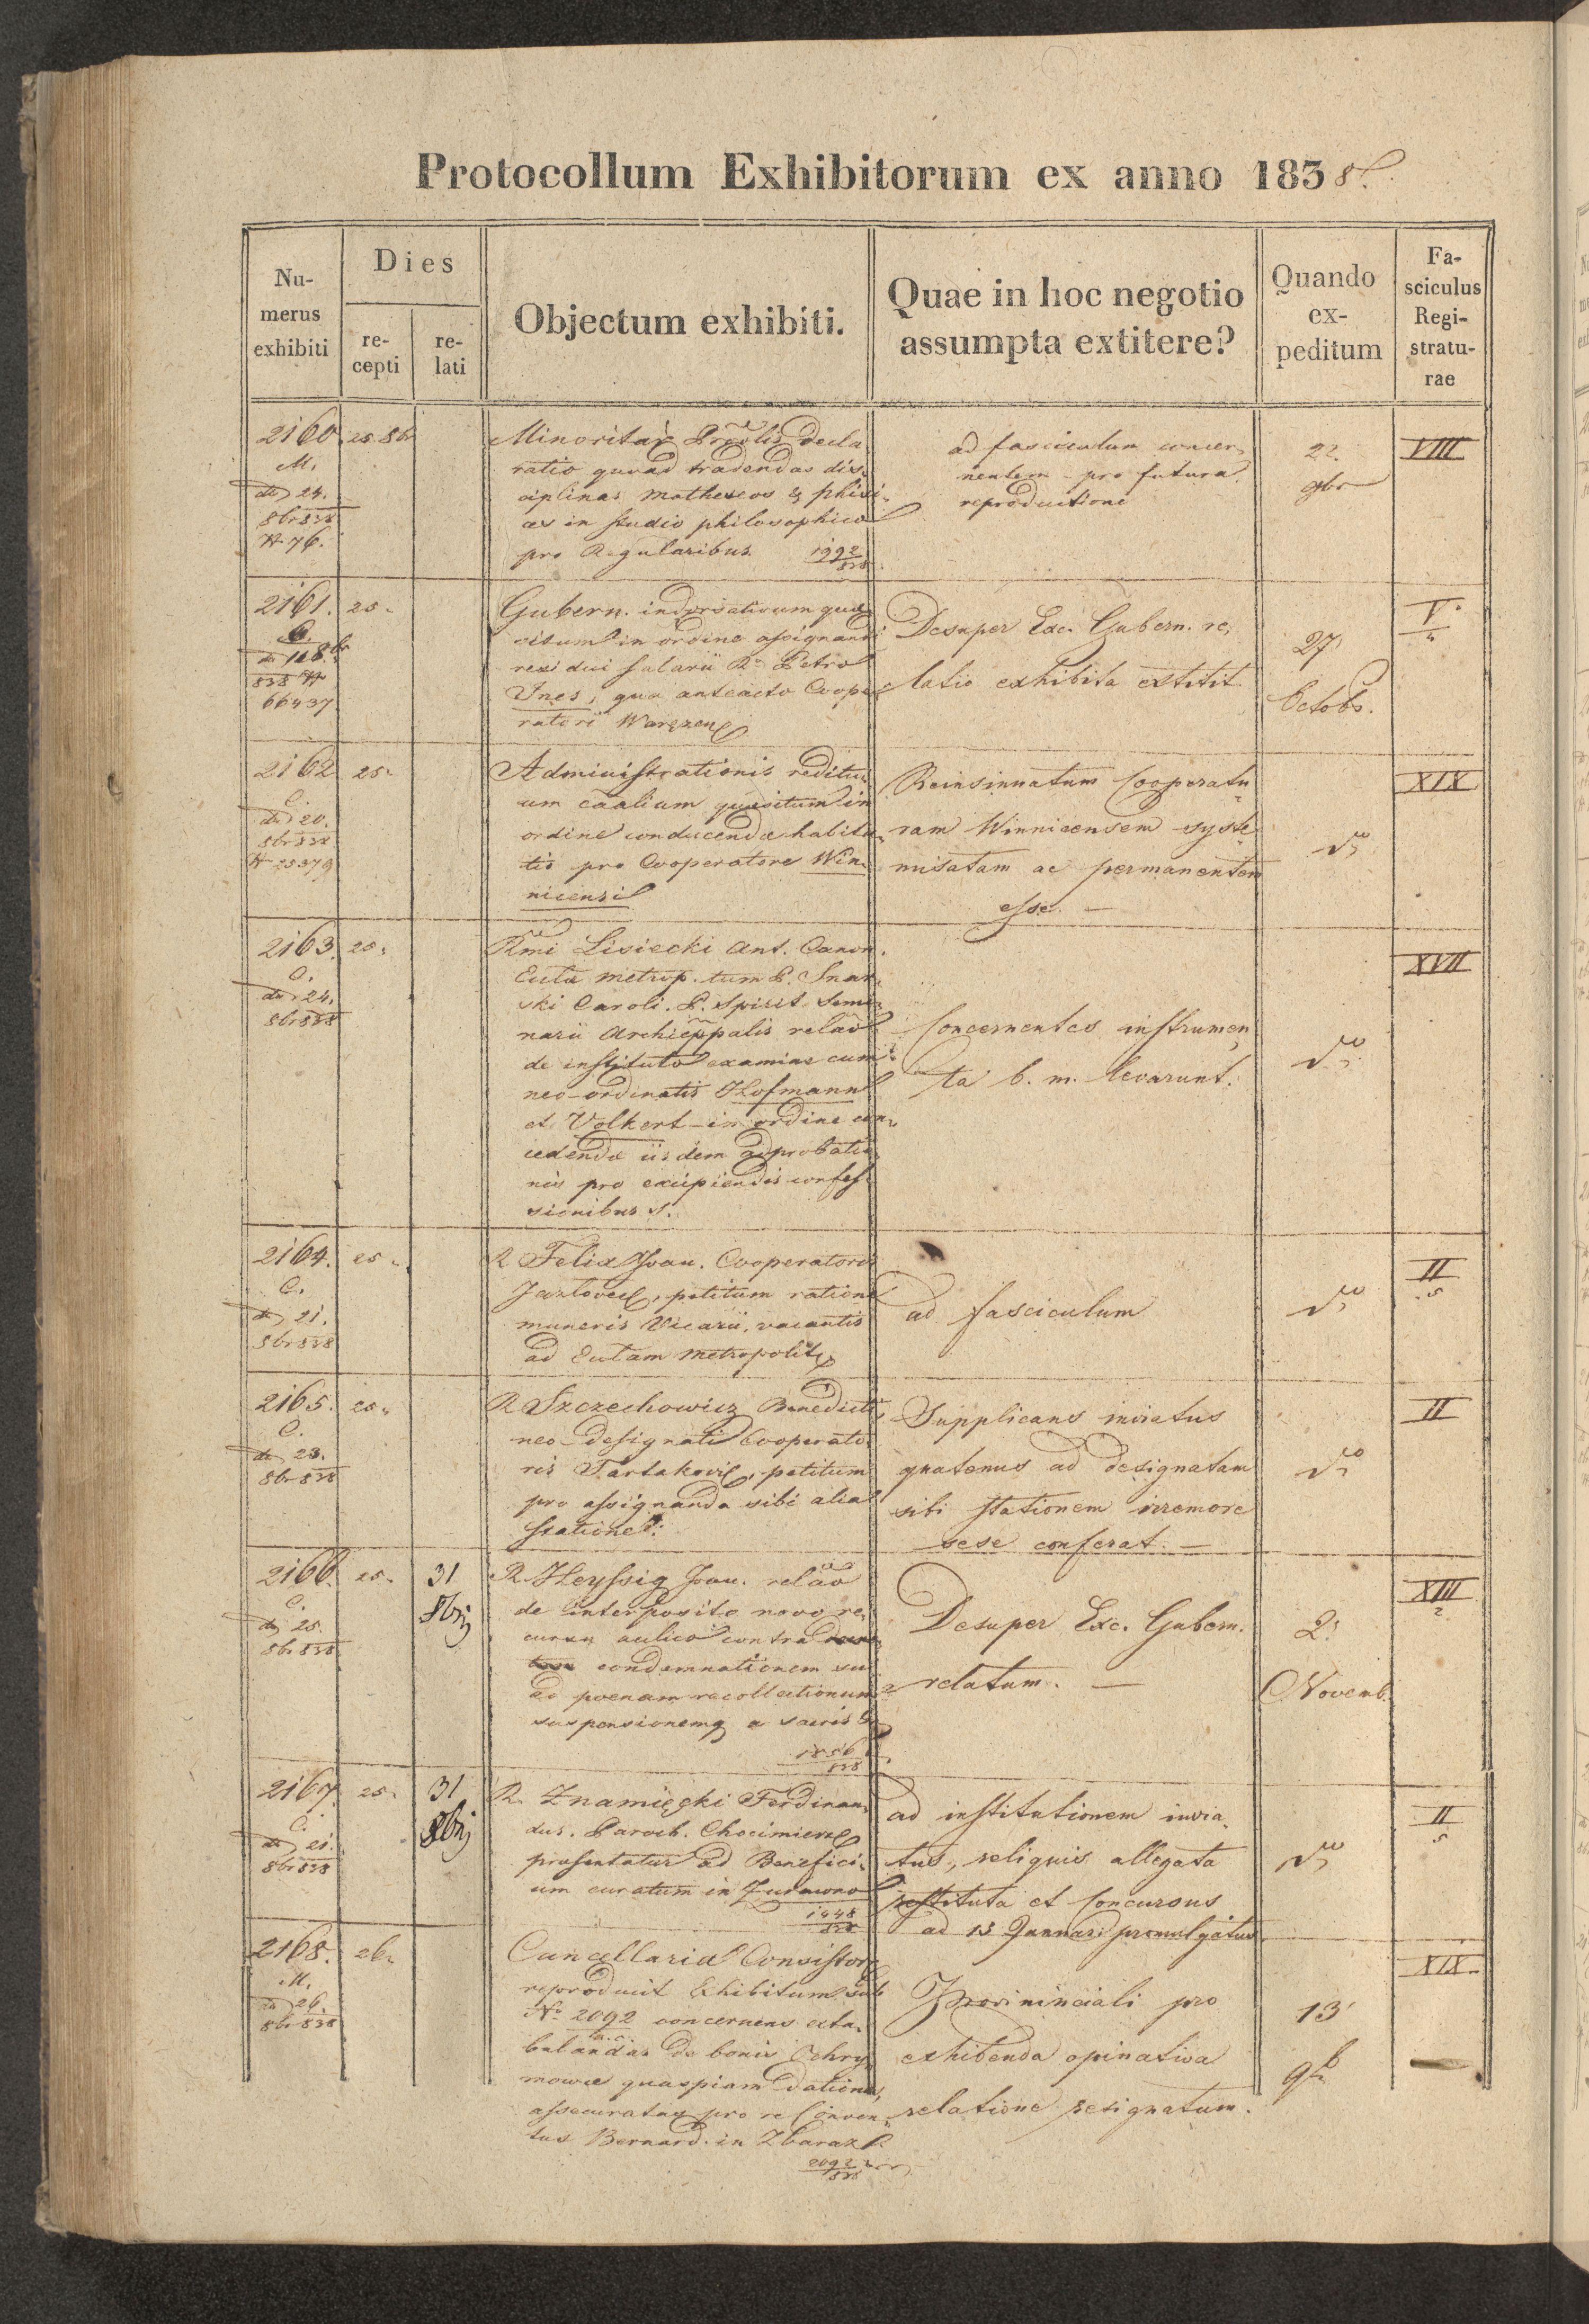 Protocollum Exhibitorum ex anno 1838.
Nu-
merus
exhibiti
Dies
re-
cepti
re-
lati
Objectum exhibiti.
Quae in hoc negotio
assumpta extitere?
Quando
ex-
peditum
Fa-
sciculus
Regi-
stratu-
rae
2160. 25. 8br
M.
dto 24.
8br 838
N 76.
Minoritar Prõlis decla
ratio quoad tradendas dis-
ciplinas matheseos & phisi-
cæ in studio philosophico
pro Regularibus 1992/838
ad fasciculum concer-
nentem pro futura
reproductione
22.
9br
VIII
2161. 25.
G.
838 N
66437
Gubern. indorsatioum quæ
situm in ordine assignandi
residui salarii R. Petro
Ines, qua anteacto Coope-
ratori Waręzen
Desuper Exc. Gubern. re-
latio exhibita extitit.
27
Octobr.
V.
2162 25.
C.
dto 20.
8br 838
N 25379
Administrationis reditu-
um caalium quæsitum in
ordine conducendæ habita-
tio pro Cooperatore Win-
nicensi
Reinsinuatum Cooperatu-
ram Winnicensem syste-
misatam ac permanentem
esse. —
dto
XIX
2163. 25.
C.
dto 24.
8br 838
Rmi Lisiecki Ant. Canon.
Ecclã metrop. tum P. Snar-
ski Caroli. P. Spirit. Semi-
narii Archieppalis relaõ
de instituto examine cum
neo-ordinatis Hofmann
et Volkert in ordine con-
cedendæ iisdem adprobatio-
nis pro excipiendis confes-
sionibus s.
Concernentes instrumen-
ta b. m. levarunt.
dto
XVII
2164. 25.
C.
dto 21.
8br 838
R Felix Joan. Cooperatoris
Jazlovec, petitum ratione
muneris Vicarii, vacantis
ad Eccłam metropolit.
ad fasciculum
dto
II
5
2165. 25.
C.
dto 23.
8br 838
R Szczechowicz Benedicti
neo-designati Cooperato-
ris Tartakovi, petitum
pro assignanda sibi alia
statione.
Supplicans inviatus
quatenus ad designatam
sibi stationem irremore
sese conferat. —
dto
II
2166. 25. 31
C. 8brj
dto 25.
8br 838
R Heyssig Joan. relaõ
de interposito novo re-
cursu aulico contra
condemnationem sui
ad poenam recollectionum
suspensionemq a sacris
1856/838
Desuper Exc. Gubern.
relatum. —
2.
Novemb.
XIII
2
2167 25. 31
C. 8brj
dto 21.
8br 838
R. Znamięcki Ferdinan-
dus. Paroch. Chocimiens
præsentatur ad Benefici-
um curatum in Zurawno
1448/838
ad institutionem invia-
tus, reliquis allegata
restituta et Concursus
ad 15 Januari promulgatus
dto
II
5
2168. 26.
M.
dto 26.
8br 838
Cancellaria Consistor
reproducit Exhibitum sub
No 2092 concernens exta-
a. c.
bulandas de bonis Ochry-
mowce quaspiam dationes,
assecuratas pro re Conven-
tus Bernard. in Zbaraz.
2092/838
Provininciali pro
exhibenda opinativa
relatione resignatum.
13
9br
XIX